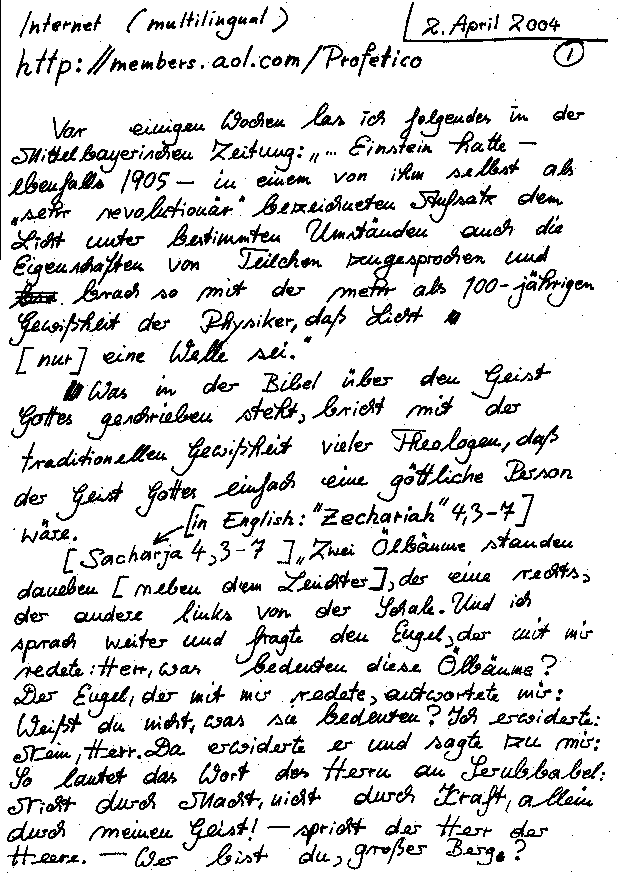 Internet (multilingual)
2. April 2004
http://members.aol.com/Profetico
1
Vor einigen Wochen las ich folgendes in der
Mittelbayerischen Zeitung: „... Einstein hatte –
ebenfalls 1905 – in einem von ihm selbst als
„sehr revolutionär" bezeichneten Aufsatz dem
Licht unter bestimmten Umständen auch die
Eigenschaften von Teilchen zugesprochen und
brach so mit der mehr als 100-jährigen
Gewißheit der Physiker, daß Licht
[nur] eine Welle sei."
Was in der Bibel über den Geist
Gottes geschrieben steht, bricht mit der
traditionellen Gewißheit vieler Theologen, daß
der Geist Gottes einfach eine göttliche Person
wäre.
[in English: "Zechariah" 4,3-7]
[Sacharja 4,3-7] „Zwei Ölbäume standen
daneben [neben dem Leuchter], der eine rechts,
der andere links von der Schale. Und ich
sprach weiter und fragte den Engel, der mit mir
redete: Herr, was bedeuten diese Ölbäume?
Der Engel, der mit mir redete, antwortete mir:
Weißt du nicht, was sie bedeuten? Ich erwiderte:
Nein, Herr. Da erwiderte er und sagte zu mir:
So lautet das Wort des Herrn an Serubbabel:
Nicht durch Macht, nicht durch Kraft, allein
durch meinen Geist! – spricht der Herr der
Heere. – Wer bist du, großer Berg?